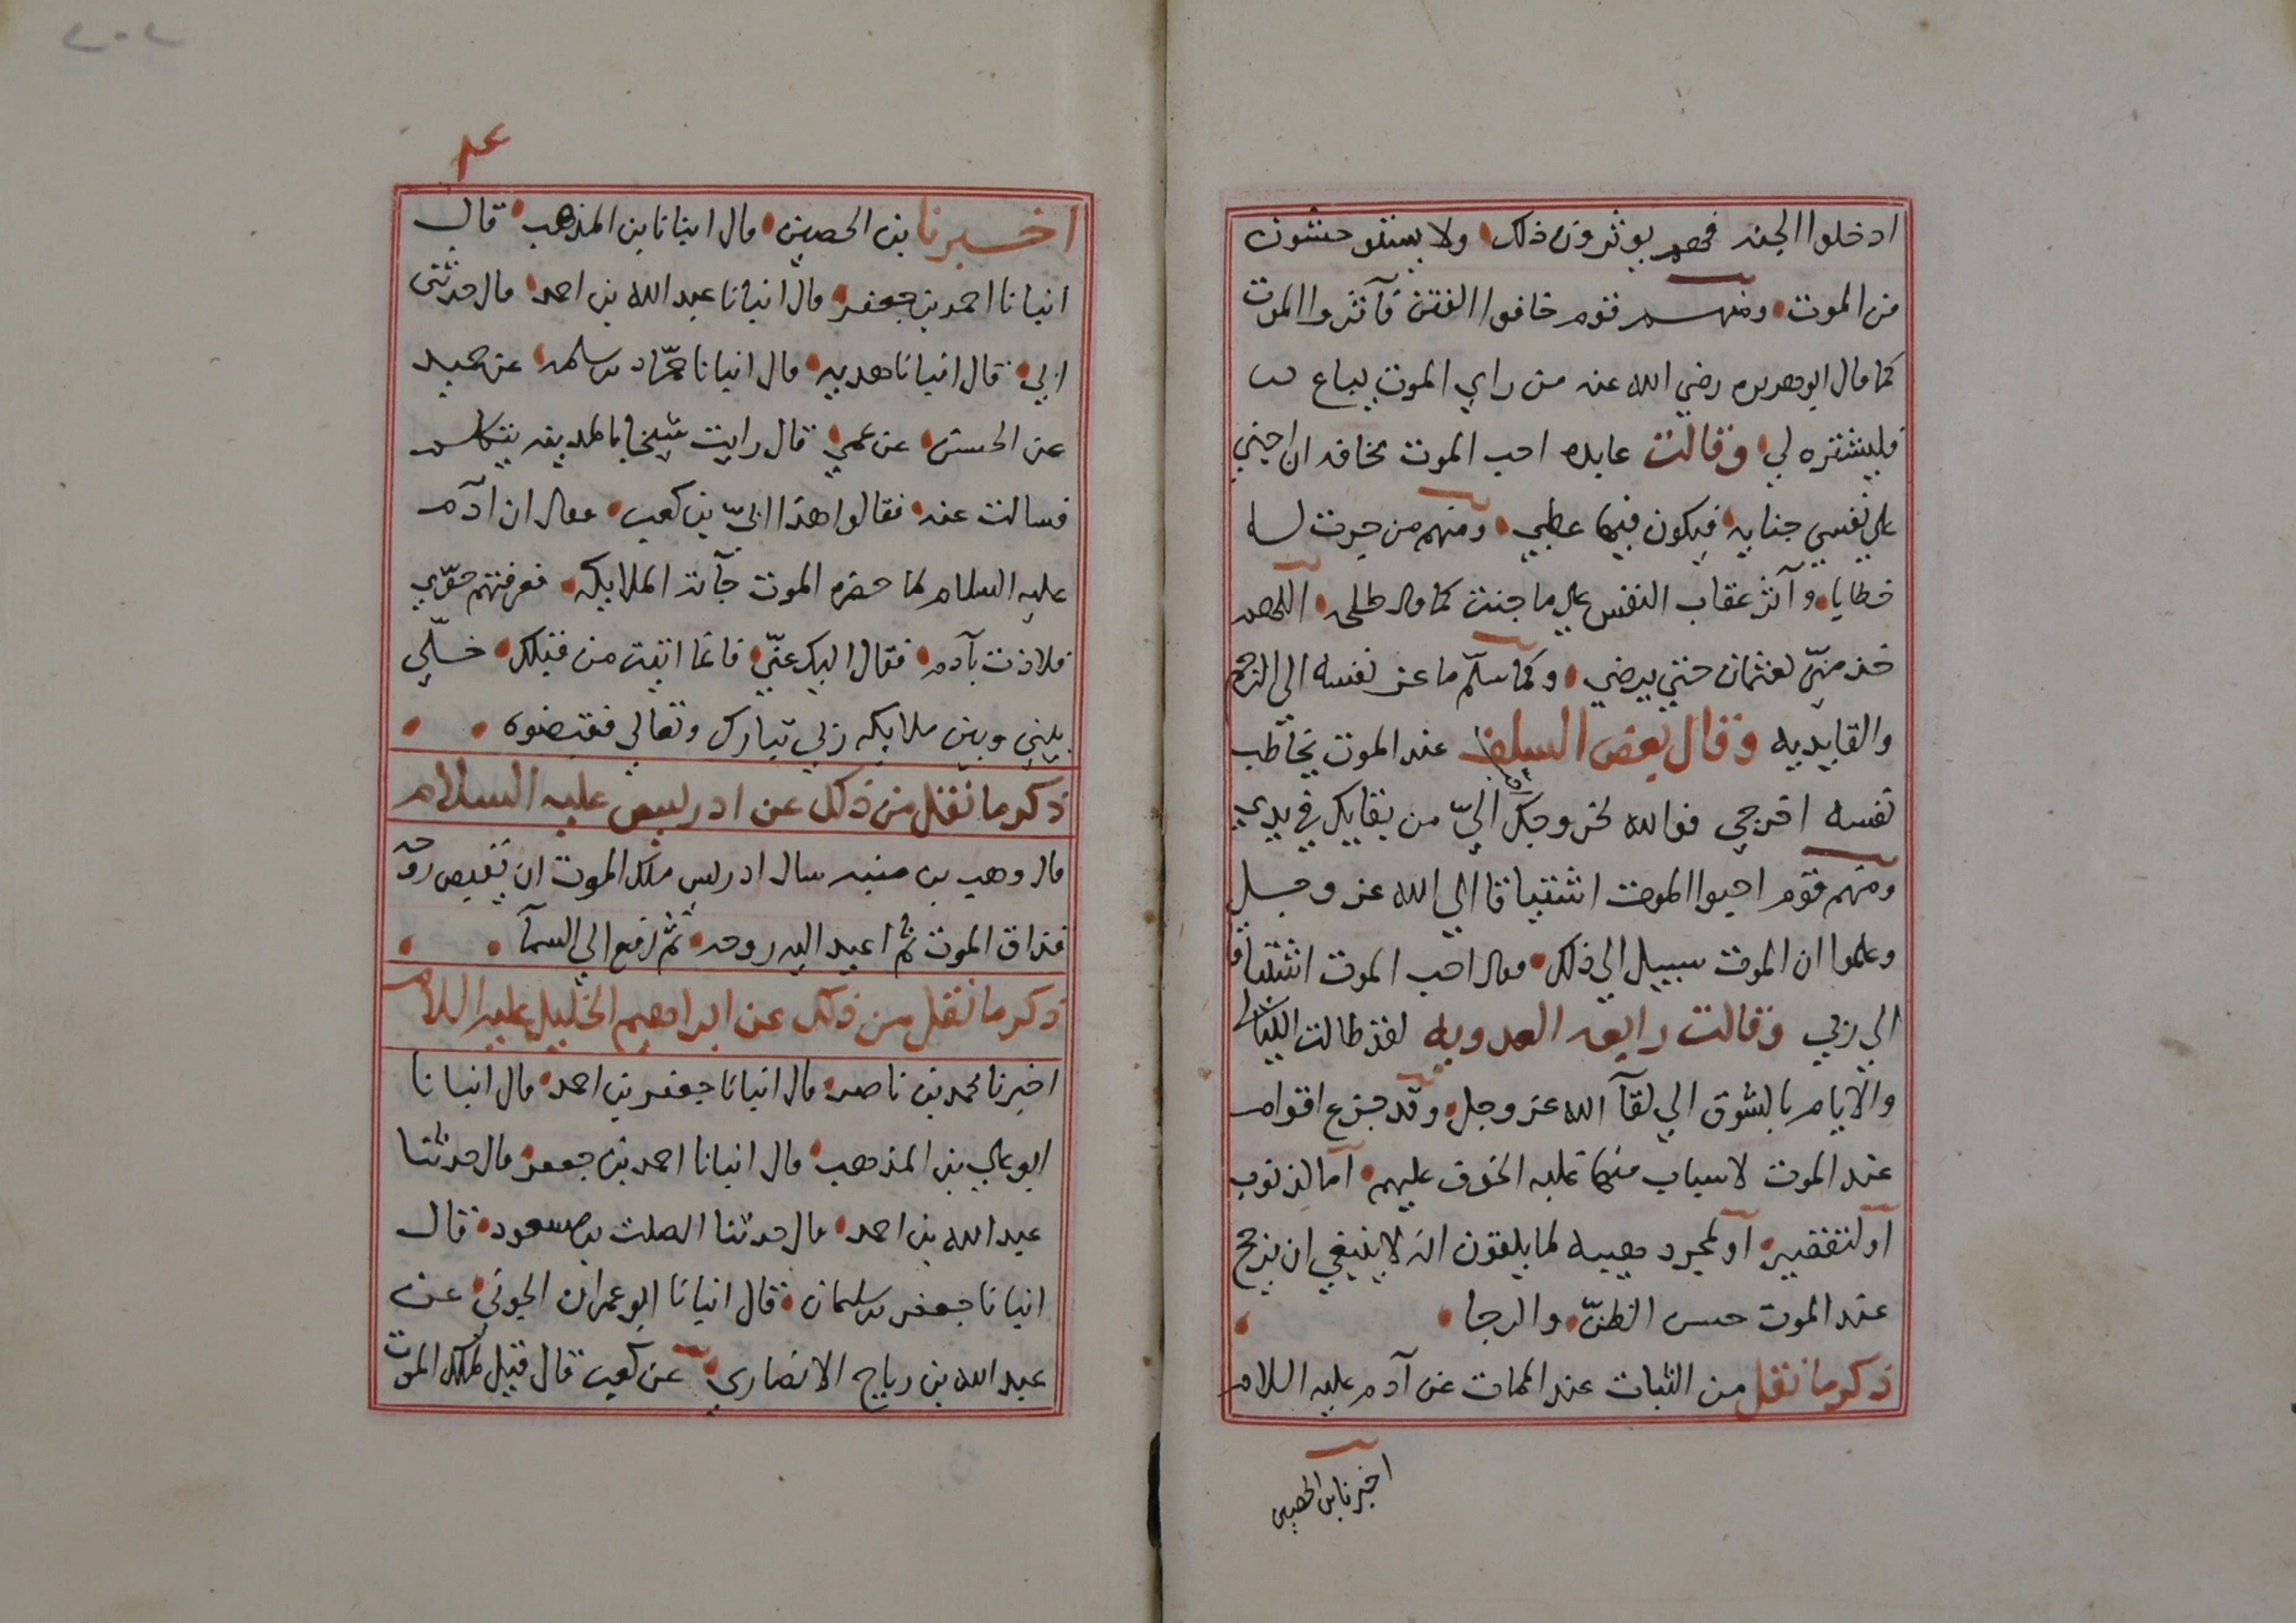 ادخلوا الجنه فهم يوثرون ذلك ولا يستوحشون
من الموت ومنهم قوم خافوا الفتن فآثروا الموت
كما قال ابو هريره رضي الله عنه من راي الموت يباع
فليشتره لي وقالت عابده احب الموت مخافه ان اجني
علي نفسي جنايه فيكون فيها عطبي ومنهم من جرت له
خطايا وآثر عقاب النفس علي ما جنت كما قال طلحه اللهم
خذ مني لعثمان حتي يرضي وكما سلم ماعز نفسه الي الرجم
والقايديه وقال بعض السلف عند الموت يخاطب
نفسه اخرجي فوالله لخروجك الي من بقايك في بدي
ومنهم قوم احبوا الموت اشتياقا الي الله عز وجل
وعلموا ان الموت سبيل الي ذلك وقال احب الموت اشتياقا
الي ربي وقالت رابعه العدويه لقد طالت الليالي
والايام بالشوق الي لقآ الله عز وجل وقد جزع اقوام
عند الموت لاسباب منها غلبه الخوف عليهم اما لذنوب
او لتقصير او لمجرد هيبه لما يلقون انه لا ينبغي ان يرجح
عند الموت حسن الظن والرجا
ذكر ما نقل من الثبات عند الممات عن آدم عليه السلام
اخبرنا بن الحصين
اخبرنا بن الحصين قال انبانا بن المذهب قال
انبانا احمد بن جعفر قال انبانا عبد الله بن احمد قال حدثني
ابي قال انبانا هدبه قال انبانا حماد بن سلمه عن حميد
عن الحسن عن عمي قال رايت شيخا بالمدينه يتكلم
فسالت عنه فقالوا هذا ابيّ بن كعب فقال ان آدم
عليه السلام لما حضره الموت جآت الملايكه فعرفتهم حوّي
فلاذت بآدم فقال اليك عنّي فانما اتيت من قبلك خلّي
بيني وبين ملايكه ربي تبارك وتعالي فقبضوه
ذكر ما نقل من ذلك عن ادريس عليه السلام
قال وهب بن منبه سال ادريس ملك الموت ان يقبض روحه
فذاق الموت ثم اعيد اليه روحه ثم رفع الي السمآ
ذكر ما نقل من ذلك عن ابراهيم الخليل عليه السلام
اخبرنا محمد بن ناصر قال انبانا جعفر بن احمد قال انبانا
ابو علي بن المذهب قال انبانا احمد بن جعفر قال حدثنا
عبد الله بن احمد قال حدثنا الصلت بن مسعود قال
انبانا جعفر بن سليمان قال انبانا ابو عمران الجوني عن
عبد الله بن رباح الانصاري عن كعب قال قيل لملك الموت